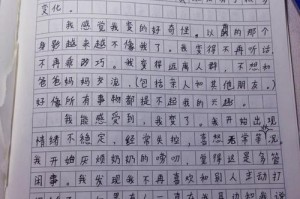 变化。
我感觉我变的好奇怪。以前的那个
身影越来越不像我了。我变得不再听话
不再乖巧。我变得远离人群，不想和
爸爸妈妈多说，(包括亲人和其他朋友。)
好像所有事物都提不起我的兴趣。
我能感受到，我变了。我开始出现
情绪不稳定，经常失控，喜怒无常等情况。
我开始厌烦奶奶的唠叨，觉得这是多管
闲事。我发现我不再喜欢和别人主动打